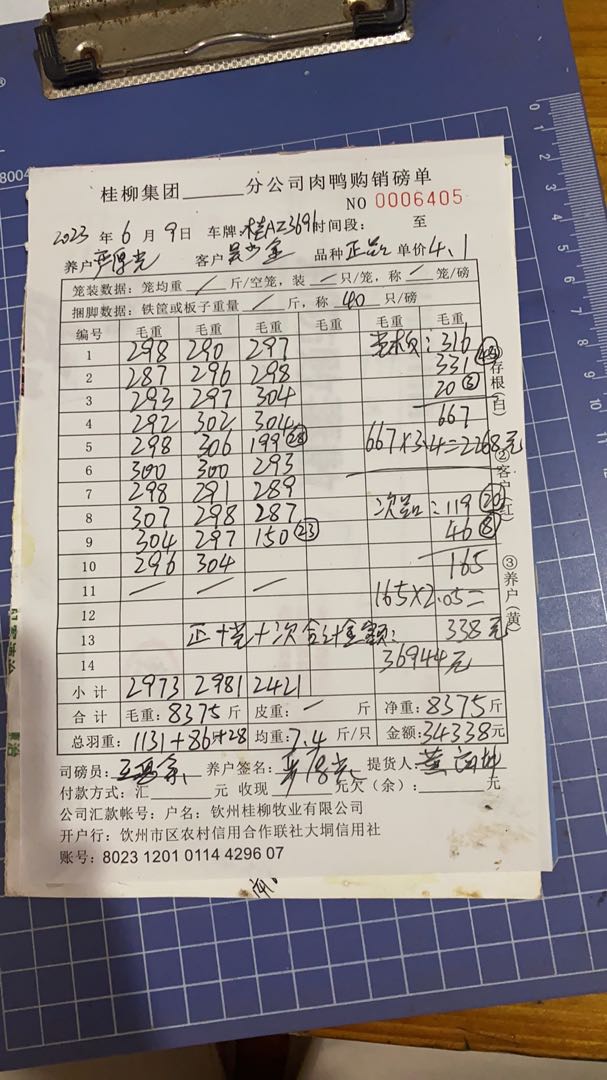 桂柳集团______分公司肉鸭购销磅单
NO 0006405
2023 年 6 月 9 日 车牌:桂AZ3696 时间段: 至
养户 客户 品种 正品 单价 4.1
笼装数据:笼均重 / 斤/空笼,装 / 只/笼,称 / 笼/磅
捆脚数据:铁筐或板子重量 / 斤,称 40 只/磅
编号 毛重 毛重 毛重 毛重 毛重 毛重
1 298 290 297 : 316
2 287 296 298 331
3 293 297 304 20 ③
4 292 302 304 667
5 298 306 199 667×3.4=2268元
6 300 300 293
7 298 291 289
8 307 298 287 次品: 119 ⑳
9 304 297 150 ㉓ 46 ⑧
10 296 304 165
11 / / / 165×2.05=
12
13 正+ +次合计金额: 338元
14 36944元
小计 2973 2981 2421
合计 毛重:8375 斤 皮重: — 斤 净重:8375 斤
总羽重: 1131+86+28 均重:7.4 斤/只 金额:34338元
司磅员: 养户签名: 提货人:
付款方式:汇______元 收现______元欠(余):______元
公司汇款帐号:户名:钦州桂柳牧业有限公司
开户行:饮州市区农村信用合作联社大垌信用社
账号:8023 1201 0114 4296 07
存根(白)
②客户(红)
③养户(黄)
0 1 2 3 4 5 6 7 8 9 10